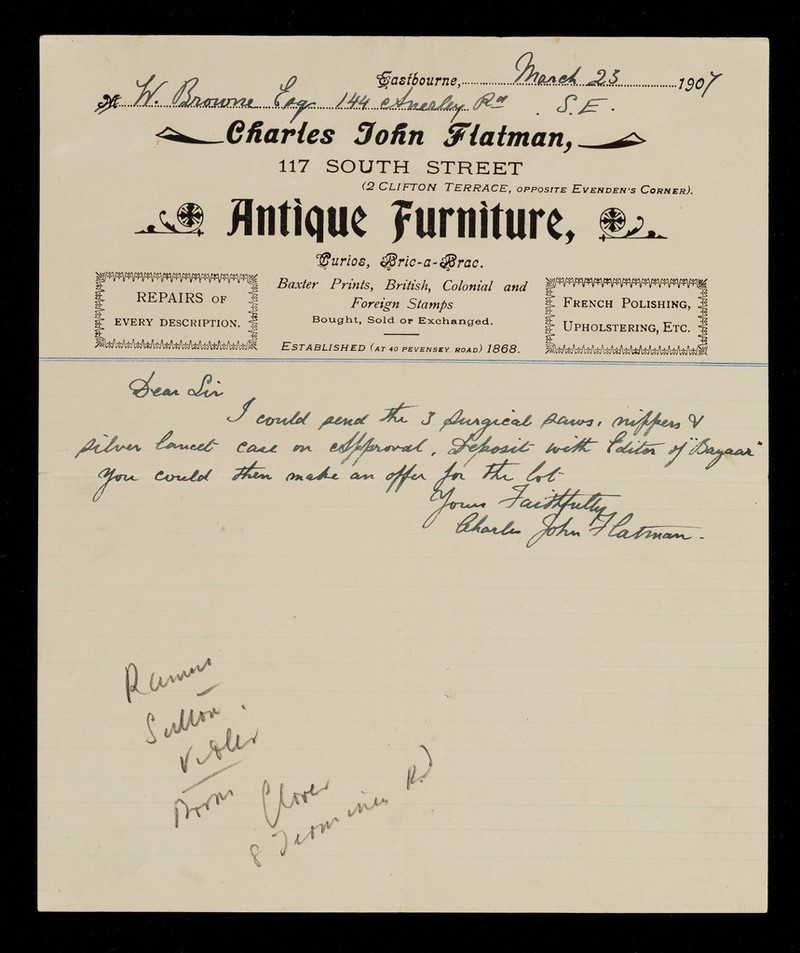 Eastbourne, March 23 1907
M W. Browne Esq 144 Anerley Rd. S.E.
Charles John Flatman,
117 SOUTH STREET
(2 CLIFTON TERRACE, OPPOSITE EVENDEN'S CORNER).
Antique Furniture,
Curios, Bric-a-Brac.
REPAIRS OF
EVERY DESCRIPTION.
Baxter Prints, British, Colonial and
Foreign Stamps
Bought, Sold or Exchanged.
ESTABLISHED (AT 40 PEVENSEY ROAD) 1868.
FRENCH POLISHING,
UPHOLSTERING, ETC.
Dear Sir
I could send the 3 surgical saws, nippers &
silver lancet case on Approval, Deposit with Editor of "Bazaar"
You could then make an offer for the lot
Yours Faithfully
Charles John Flatman -
Sutton.
Vidler
Clover
8 Rd